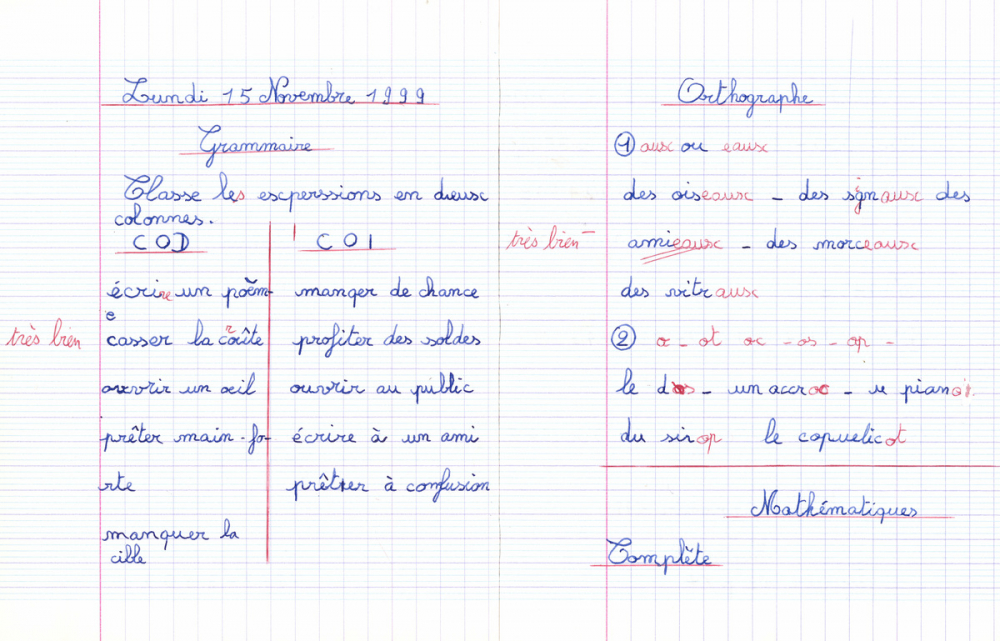 Lundi 15 Novembre 1999
Grammaire
Classe les experssions en dieux
colonnes.
COD
écrire un poèm
e
très bien casser la croûte
ouvrir un oeil
prêter main-fo-
rte
manquer la
cible
COI
manger de chance
profiter des soldes
ouvrir au public
écrire à un ami
prêter à confusion
Orthographe
① aux ou eaux
des oiseaux - des signaux des
très bien amieaux - des morceaux
des vitraux
② o - ot oc - os - op -
le dos - un accroc - piano
du sirop le copuelicot
Mathématiques
Complète